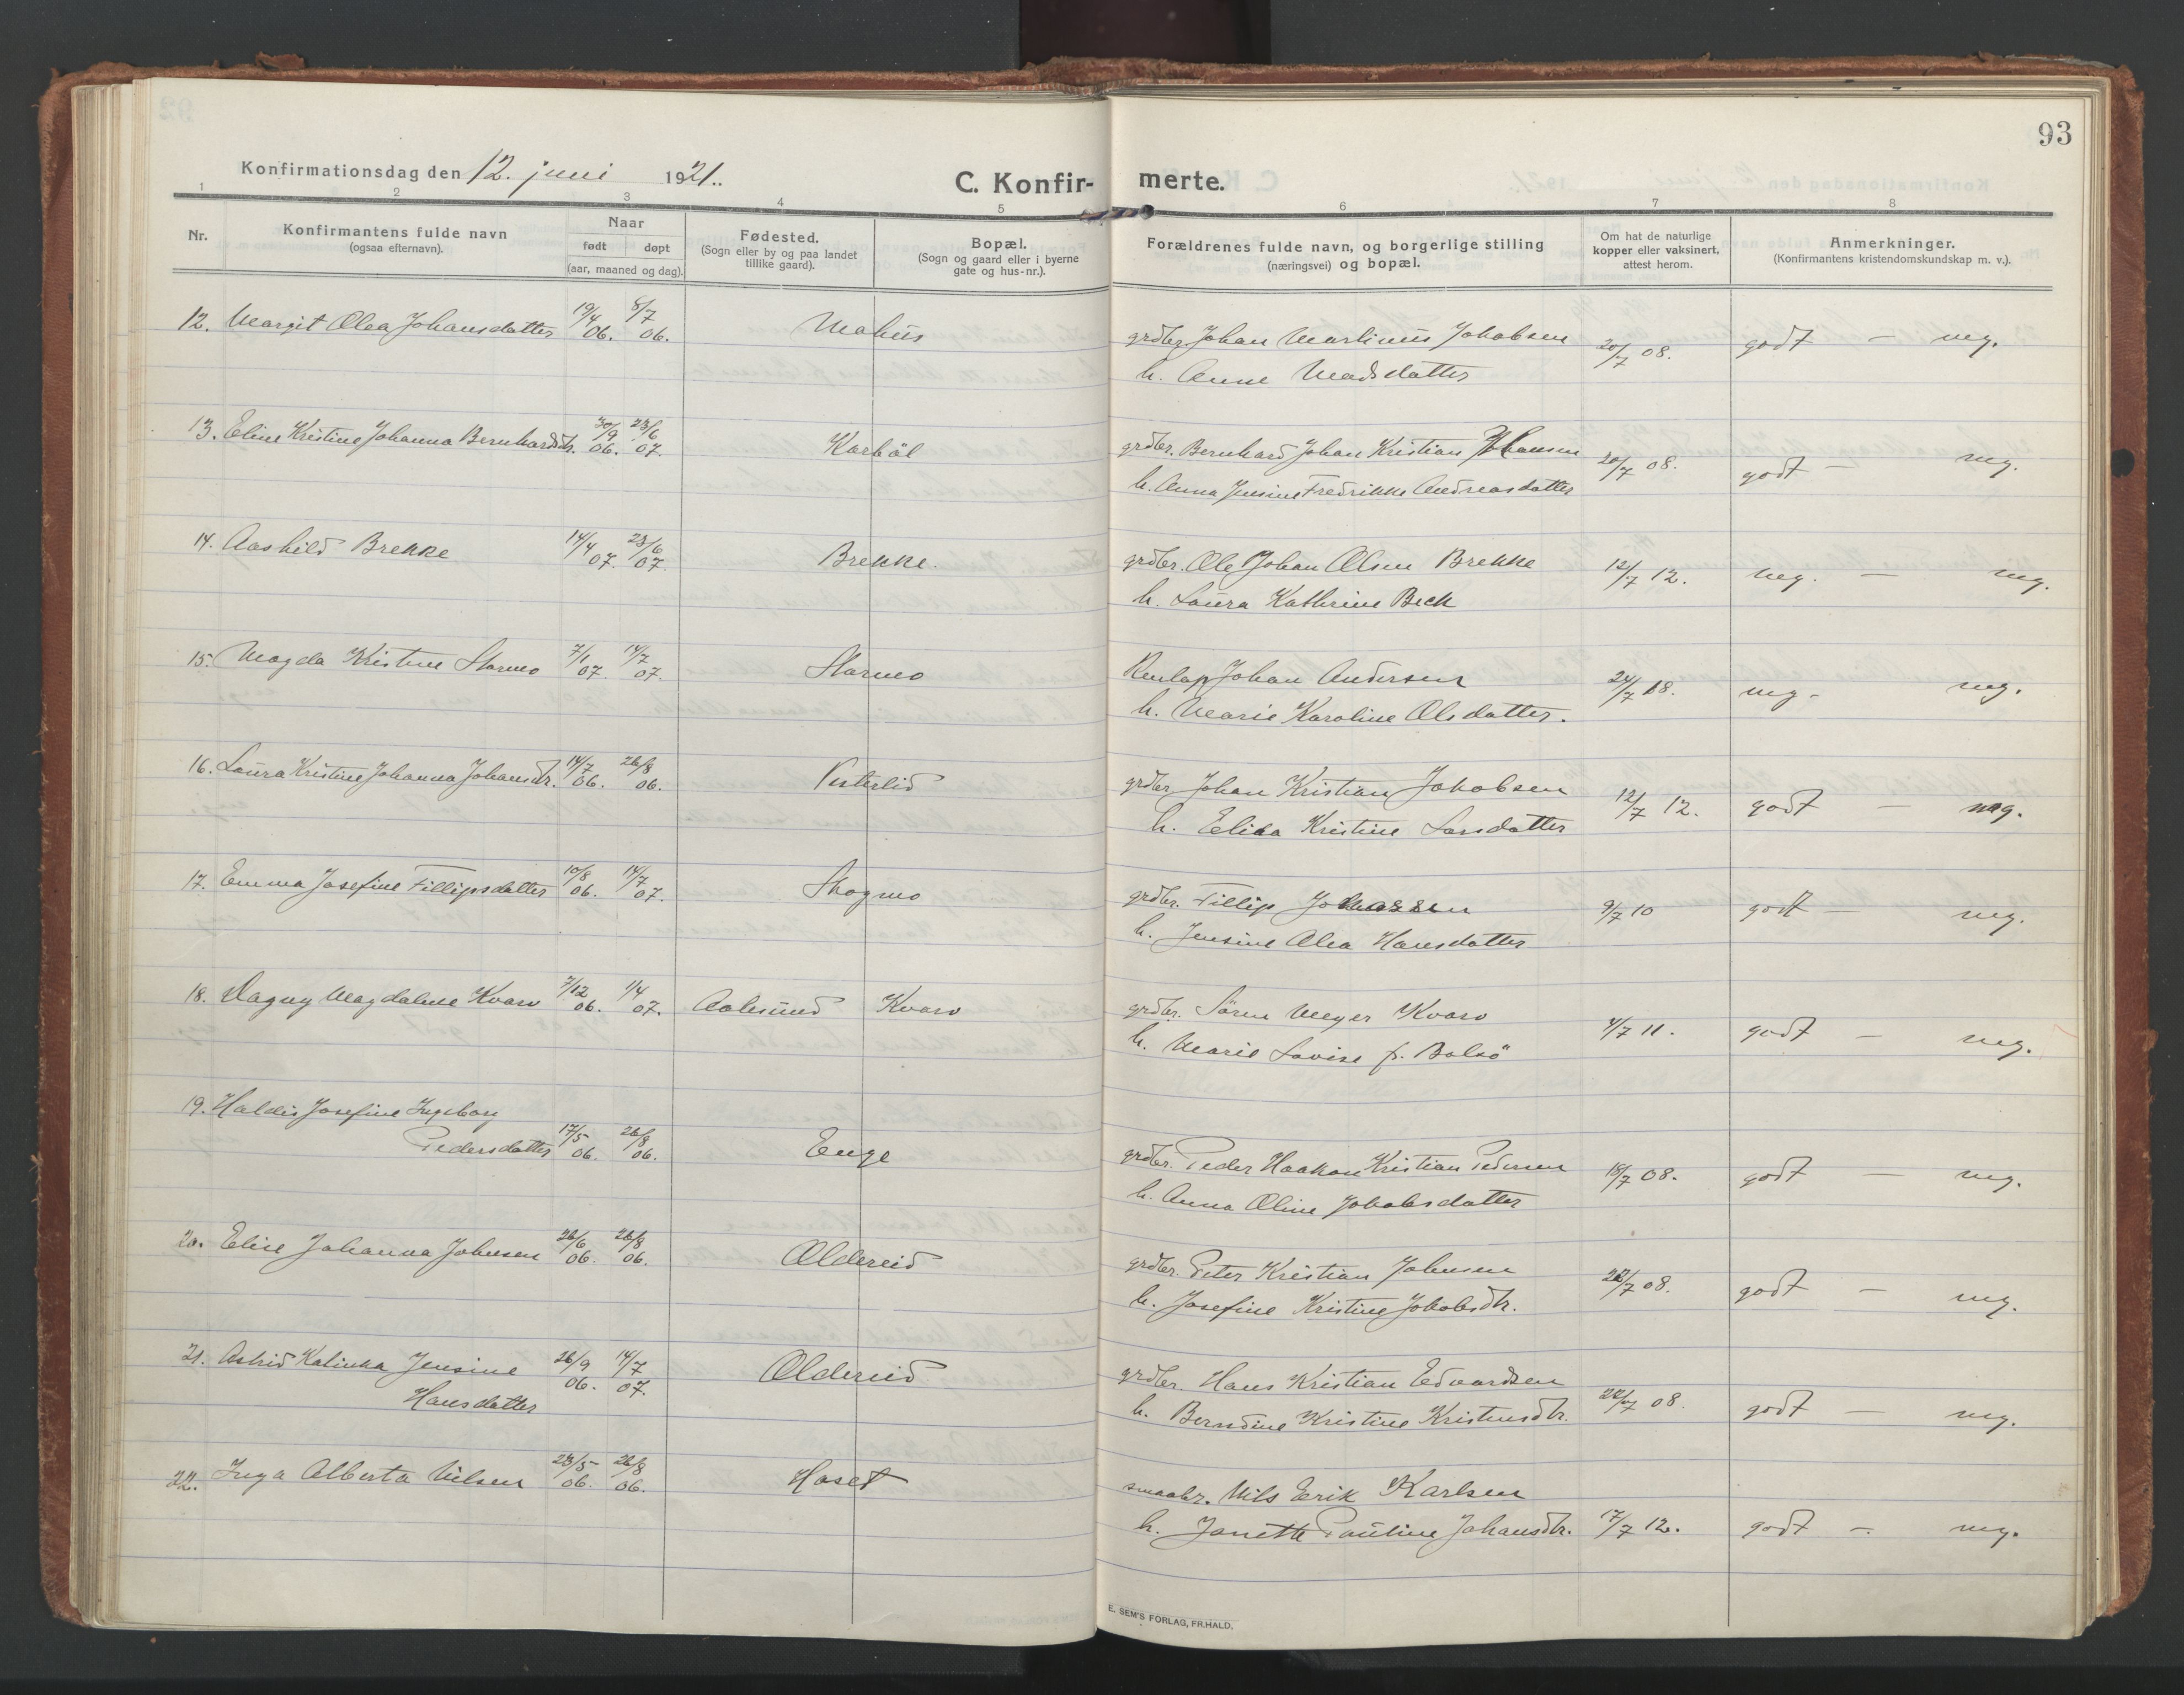 93
Konfirmationsdag den 12. juni 1921.
C. Konfir- merte.
1 2 3 4 5 6 7 8
Nr.
Konfirmantens fulde navn
(ogsaa efternavn).
Naar
født døpt
(aar, maaned og dag).
Fødested.
(Sogn eller by og paa landet
tillike gaard).
Bopæl.
(Sogn og gaard eller i byerne
gate og hus-nr.).
Forældrenes fulde navn, og borgerlige stilling
(næringsvei) og bopæl.
Om hat de naturlige
kopper eller vaksinert,
attest herom.
Anmerkninger.
(Konfirmantens kristendomskundskap m. v.).
12. Margit Olea Johansdatter 19/4 06. 8/7 06. Mahüs grdbr. Johan Martinus Jakobsen 20/7 08. godt — mg.
h. Anne Madsdatter
13. Eline Kristine Johanna Bernhardsdtr. 30/9 06. 23/6 07. Karbøl grdbr. Bernhard Johan Kristian Hansen 20/7 08. godt — mg.
h. Anna Jensine Fredrikke Andreasdatter
14. Aashild Brekke 14/4 07. 23/6 07. Brekke. grdbr. Ole Johan Olsen Brekke 12/7 12. mg. — mg.
h. Laura Kathrine Beck
15. Magda Kristine Stormo 7/1 07. 14/7 07. Stormo Renlap Johan Andersen 24/7 18. mg - mg.
h. Marie Karoline Olsdatter.
16. Laura Kristine Johanna Johansdtr. 14/7 06. 26/8 06. Visterlid grdbr. Johan Kristian Jakobsen 12/7 12. godt — mg.
h. Elisa Kristine Larsdatter
17. Emma Josefine Fillipsdatter 10/8 06. 14/7 07. Skogmo grdbr. Fillip Johassen 9/7 10 godt — mg.
h. Jensine Olea Hansdatter
18. Dagny Magdalene Kvarv 7/12 06. 1/4 07. Aalesund Kvarv grdbr. Sören Meyer Kvarv 4/7 11. godt — mg.
h. Marie Lovise f. Bolsö
19. Haldis Josefine Ingeborg
Pedersdatter 17/5 06. 26/8 06. Enge grdbr. Peder Haakon Kristian Pedersen 18/7 08. godt — mg.
h. Anna Oline Jakobsdatter
20. Elise Johanna Johnsen 26/6 06. 26/8 06. Oldereid grdbr. Peter Kristian Johnsen 22/7 08. godt — mg.
h. Josefine Kristine Jakobsdtr.
21. Astrid Kalinka Jensine 26/9 06. 14/7 07. Oldereid grdbr. Hans Kristian Edvardsen 22/7 08. godt — mg.
Hansdatter h. Berndine Kristine Kristensdtr.
22. Inga Alberta Nilsen 23/5 06. 26/8 06. Haset smaabr. Nils Erik Karlsen
h. Janette Pauline Johansdtr. 17/7 12. godt — mg.
E. SEM'S FORLAG, FR.HALD.